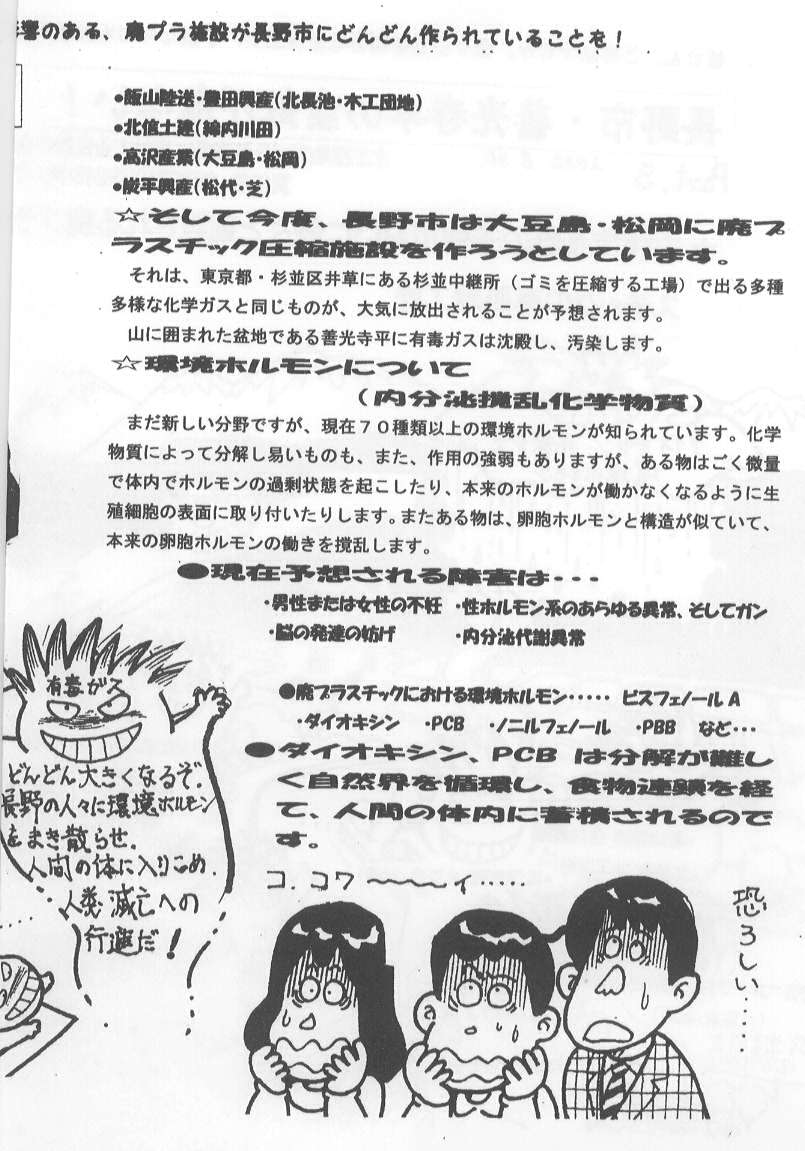 響のある、廃プラ施設が長野市にどんどん作られていることを！
●飯山陸送・豊田興産（北長池・木工団地）
●北信土建（綿内川田）
●高沢産業（大豆島・松岡）
●炭平興産（松代・芝）
☆そして今度、長野市は大豆島・松岡に廃プ
ラスチック圧縮施設を作ろうとしています。
それは、東京都・杉並区井草にある杉並中継所（ゴミを圧縮する工場）で出る多種
多様な化学ガスと同じものが、大気に放出されることが予想されます。
山に囲まれた盆地である善光寺平に有毒ガスは沈殿し、汚染します。
☆環境ホルモンについて
（内分泌撹乱化学物質）
まだ新しい分野ですが、現在７０種類以上の環境ホルモンが知られています。化学
物質によって分解し易いものも、また、作用の強弱もありますが、ある物はごく微量
で体内でホルモンの過剰状態を起こしたり、本来のホルモンが働かなくなるように生
殖細胞の表面に取り付いたりします。またある物は、卵胞ホルモンと構造が似ていて、
本来の卵胞ホルモンの働きを撹乱します。
●現在予想される障害は・・・
・男性または女性の不妊 ・性ホルモン系のあらゆる異常、そしてガン
・脳の発達の妨げ ・内分泌代謝異常
●廃プラスチックにおける環境ホルモン・・・・・ ビスフェノールA
・ダイオキシン ・PCB ・ノニルフェノール ・PBB など・・・
●ダイオキシン、PCB は分解が難し
く自然界を循環し、食物連鎖を経
て、人間の体内に蓄積されるので
す。
有毒ガス
どんどん大きくなるぞ.
長野の人々に環境ホルモン
をまき散らせ.
人間の体に入りこめ.
人類滅亡への
行進だ！
コ.コワ〜〜〜イ・・・・・
恐ろしい・・・・・